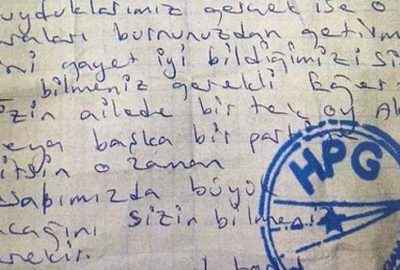 uyduklarımız gerçek ise o
araları burnunuzdan getirm
ini gayet iyi bildiğimizi siz
bilmeniz gerekli Eğer
izin ailede bir tek oy AK
eya başka bir parti
itsin o zaman
HPG
sabımızda büyük
cağını sizin bilmeni
erekir.